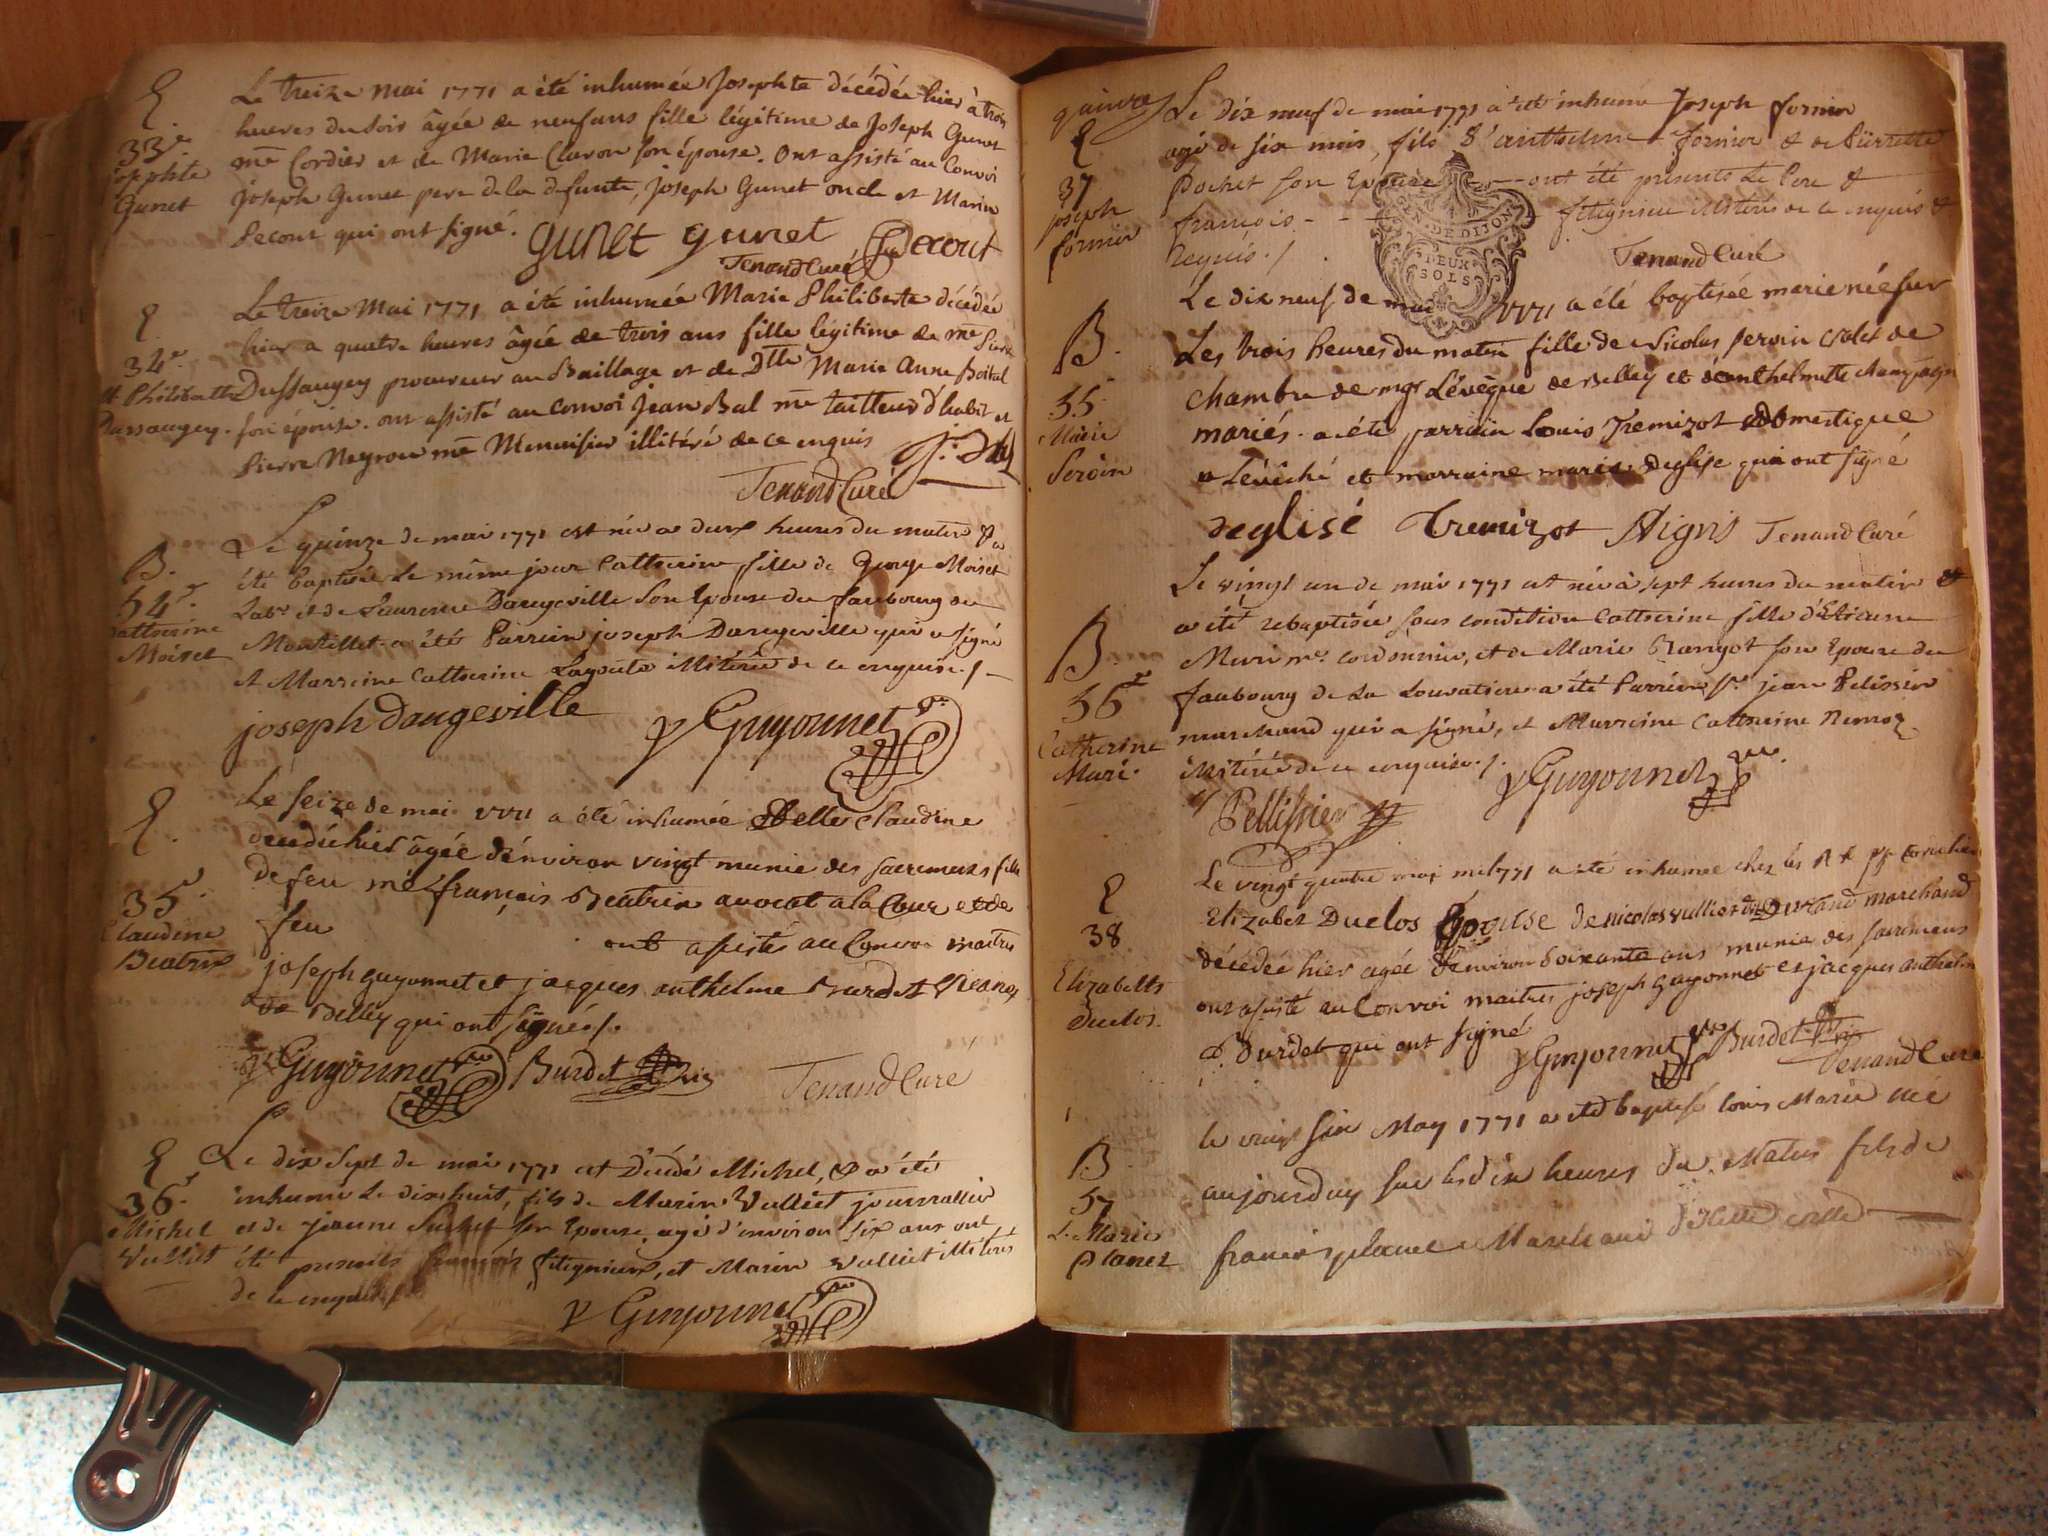 E
33e.
Josephte
Gunet
Le treize mai 1771 a été inhumée Josephte décédée hier à trois
heures du soir âgée de neuf ans fille légitime de Joseph Gunet
me Cordier et de Marie Clavon son épouse. Ont assisté au Convoi
Joseph Gunet pere de la defunte, Joseph Gunet oncle et Marin
Secout qui ont signé.
gunet gunet Secout
Tenand Curé
E
34e.
M Philiberte
Dussaugey.
Le treize Mai 1771 a été inhumée Marie Philiberte décédée
hier a quatre heures âgée de trois ans fille légitime de me
Dussaugey procureur au Bailliage et de Dlle Marie Anne Boital
son épouse. ont assisté au convoi Jean Bal me tailleur d'habit et
Pierre Neyrou me Menuisier illitéré de ce enquis
Tenand Curé
B.
54e.
Catherine
Moiset
Le quinze de mai 1771 est née a deux heures du matin & a
été baptisée le même jour Catherine fille de George Moiset
Labr et de Laurence Dangeville son Epouse du faubourg du
Montillet. a été Parrein joseph Dangeville qui a signé
et Marreine Catherine illitérée de ce enquise./
joseph dangeville Guyonnet vre
E.
35e.
Claudine
Beatrix
Le seize de mai 1771 a été inhumée Delle Claudine
décédé hier âgée d'environ vingt munie des sacremens fille
de feu me françois Beatrix avocat a la Cour et de
feu ont assistés au Convoi maitres
joseph guyonnet et jacques anthelme Burdet Vicaires
de Belley qui ont signés/.
Guyonnet vre Burdet Vic Tenand Cure
E
36e.
Michel
Vulliet
Le dix sept de mai 1771 est décédé Michel, & a été
inhumé le dixhuit, fils de Marin Vulliet journallier
et de jeanne Suchet son Epouse, agé d'environ six ans ont
été presents françois fitignieux, et Marin Vulliet illitérés
de ce enquis/.
Guyonnet vre
quinze
E
37
joseph
fornier
Le dix neuf de mai 1771 a été inhumé Joseph fornier
agé de six mois, fils d'anthelme fornier & de Pierrette
Pochet son Epouse ont été présents Le Pere &
françois - - fitignieu illitérés de ce enquis &
Requis./.
GEN. DE DIJON
DEUX
SOLS
Tenand Curé
B.
55
Marie
Peroin
Le dix neuf de mai 1771 a été baptisée marie née sur
Les trois heures du matin fille de Nicolas peroin valet de
chambre de mgr L'évêque de Belley et d'anthelmette champagne
mariés. a été parrain Louis Tremizot domestique
a L'évêché et marraine marie deglise qui ont signé
deglisé Tremizot Tenand Curé
B.
56e
Catherine
Muri.
Le vingt un de mai 1771 est née à sept heures du matin &
a été rebaptisée sous condition Catherine fille d'Etienne
Muri me. cordonnier, et de Marie Rangot son Epouse du
faubourg de La Louvatiere a été Parrein Sr. jean Pelissier
marchand qui a signé, et Marreine Catherine
illitérée de ce enquise./.
Pellissier Guyonnet vre.
E
38
Elizabeth
Duclos.
Le vingt quatre mai mil 771 a été inhumée chez les R R pp cordeliers
Elizabet Duclos Epouse de nicolas vulliet dit Durand marchand
décédée hier agée d'environ soixante ans munie des sacremens
ont assisté au Convoi maitres joseph Guyonnet et jacques anthelme
Burdet qui ont signé
Guyonnet vre Burdet Vic
Tenand Cure
B
57
L. Marie
Planet
le vingt six May 1771 a été baptisé louis Marie né
aujourduy sur les dix heures du Matin fils de
francois planet Marchand